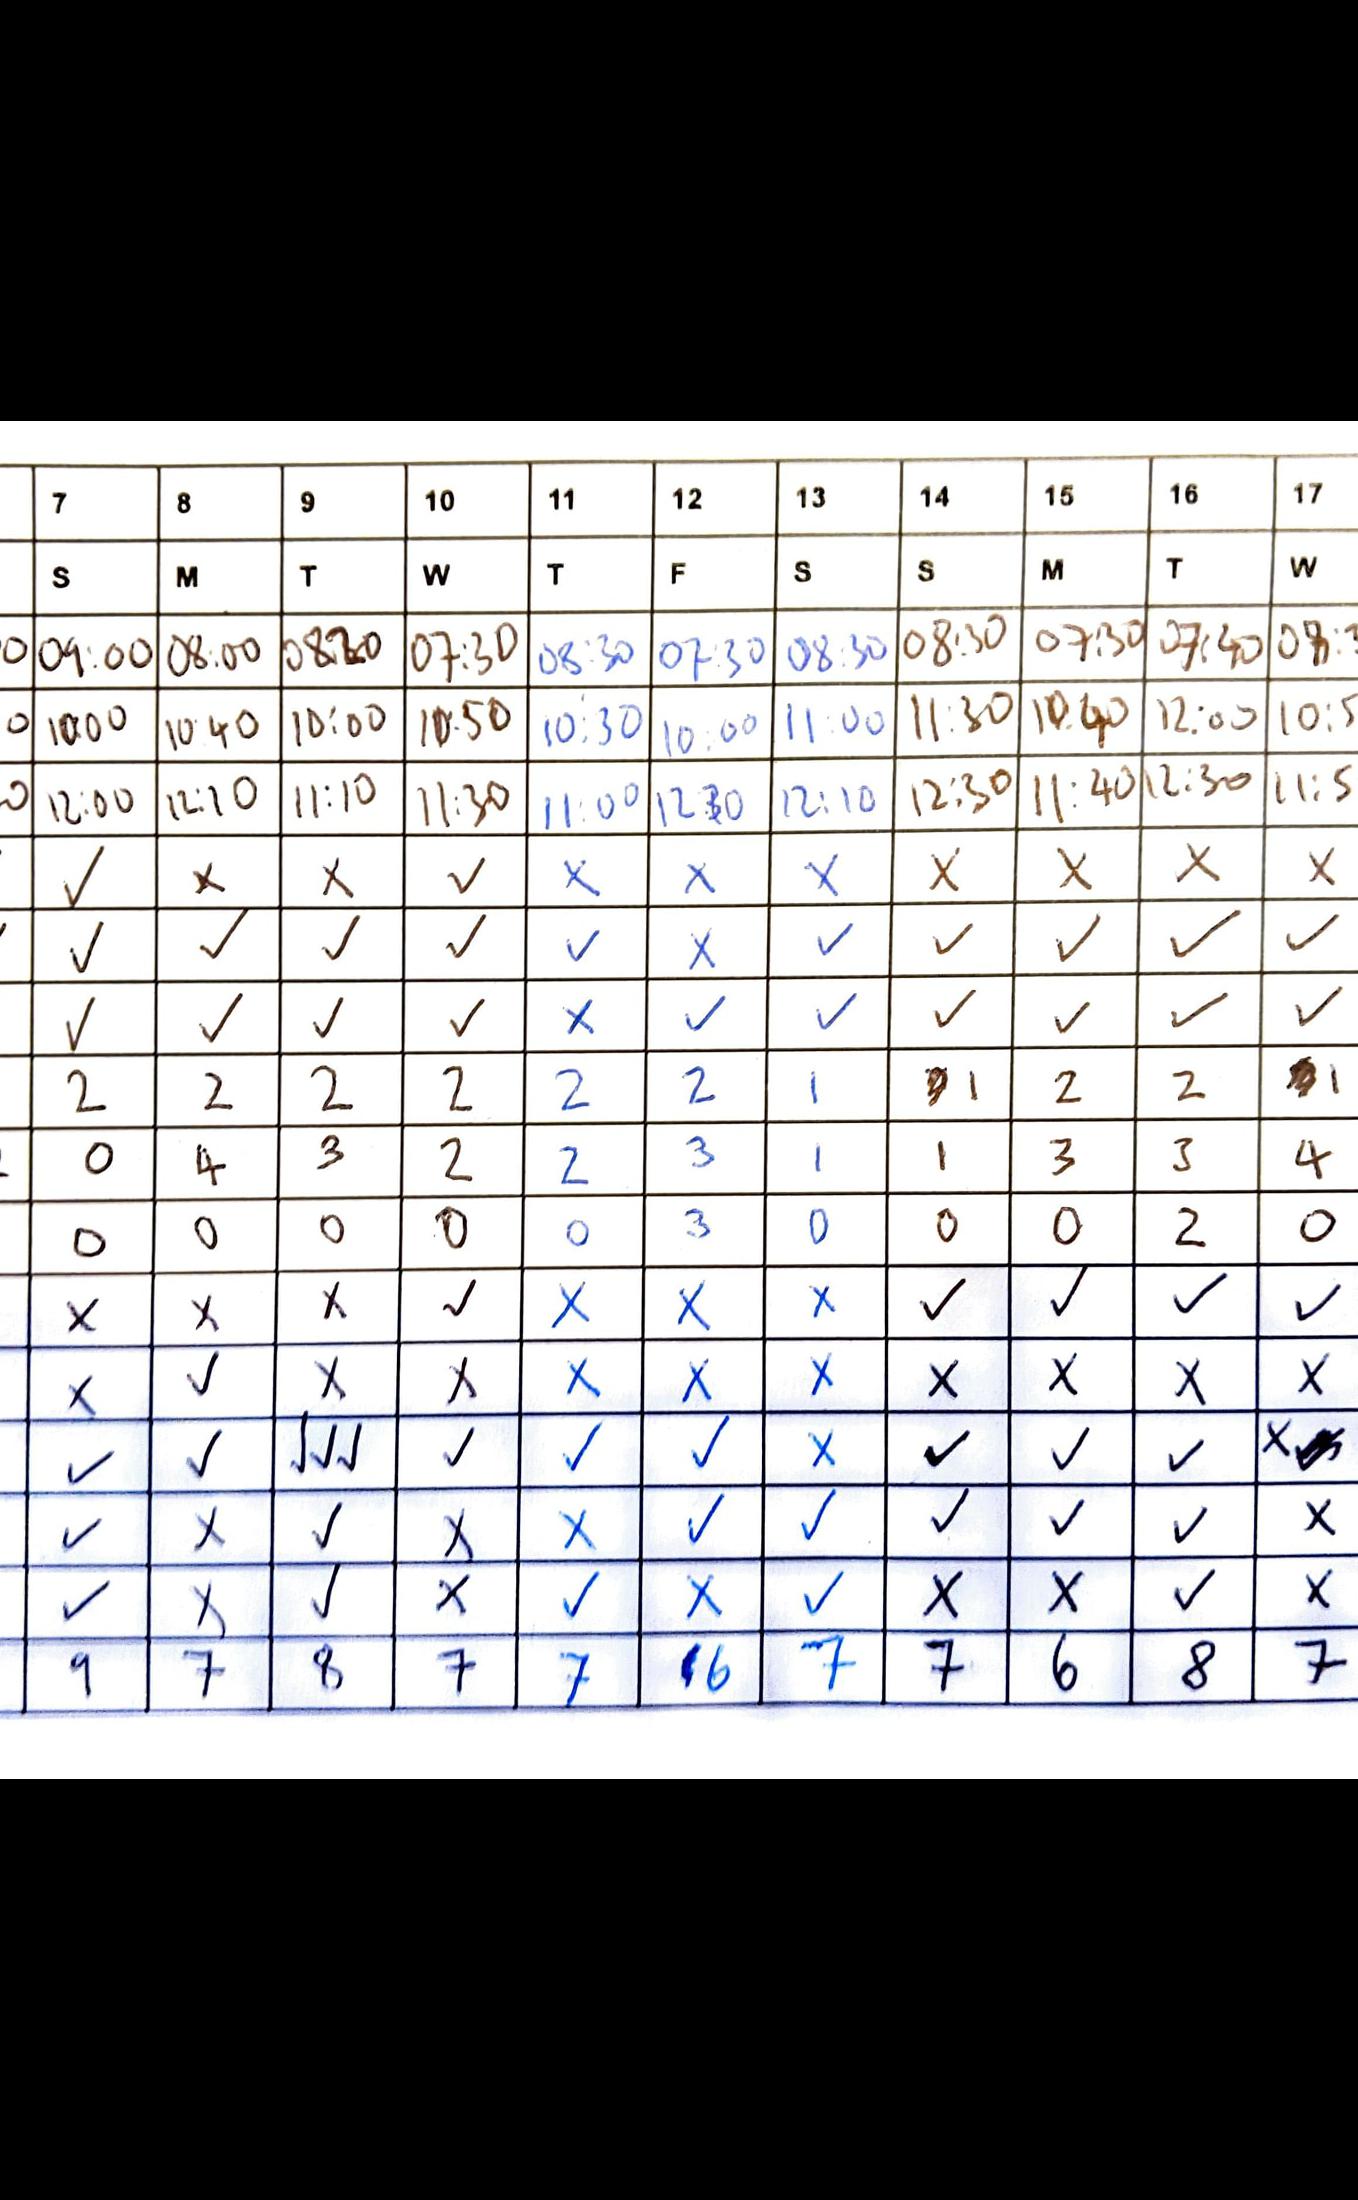 7 8 9 10 11 12 13 14 15 16 17
S M T W T F S S M T W
0 09:00 08:00 07:30 08:30 07:30 08:30 08:30 07:30 07:40
0 10:00 10:40 10:00 10:50 10:30 10:00 11:00 11:30 10:40 12:00 10:5
0 12:00 12:10 11:10 11:30 11:00 12:10 12:30 11:40 12:30 11:5
✓ x x ✓ x x x x x x x
✓ ✓ ✓ ✓ ✓ x ✓ ✓ ✓ ✓ ✓
✓ ✓ ✓ ✓ x ✓ ✓ ✓ ✓ ✓ ✓
2 2 2 2 2 2 1 1 2 2 1
0 4 3 2 2 3 1 1 3 3 4
0 0 0 0 0 3 0 0 0 2 0
x x x ✓ x x x ✓ ✓ ✓ ✓
x ✓ x x x x x x x x x
✓ ✓ ✓✓✓ ✓ ✓ ✓ x ✓ ✓ ✓ x
✓ x ✓ x x ✓ ✓ ✓ ✓ ✓ x
✓ x ✓ x ✓ x ✓ x x ✓ x
9 7 8 7 7 6 7 7 6 8 7